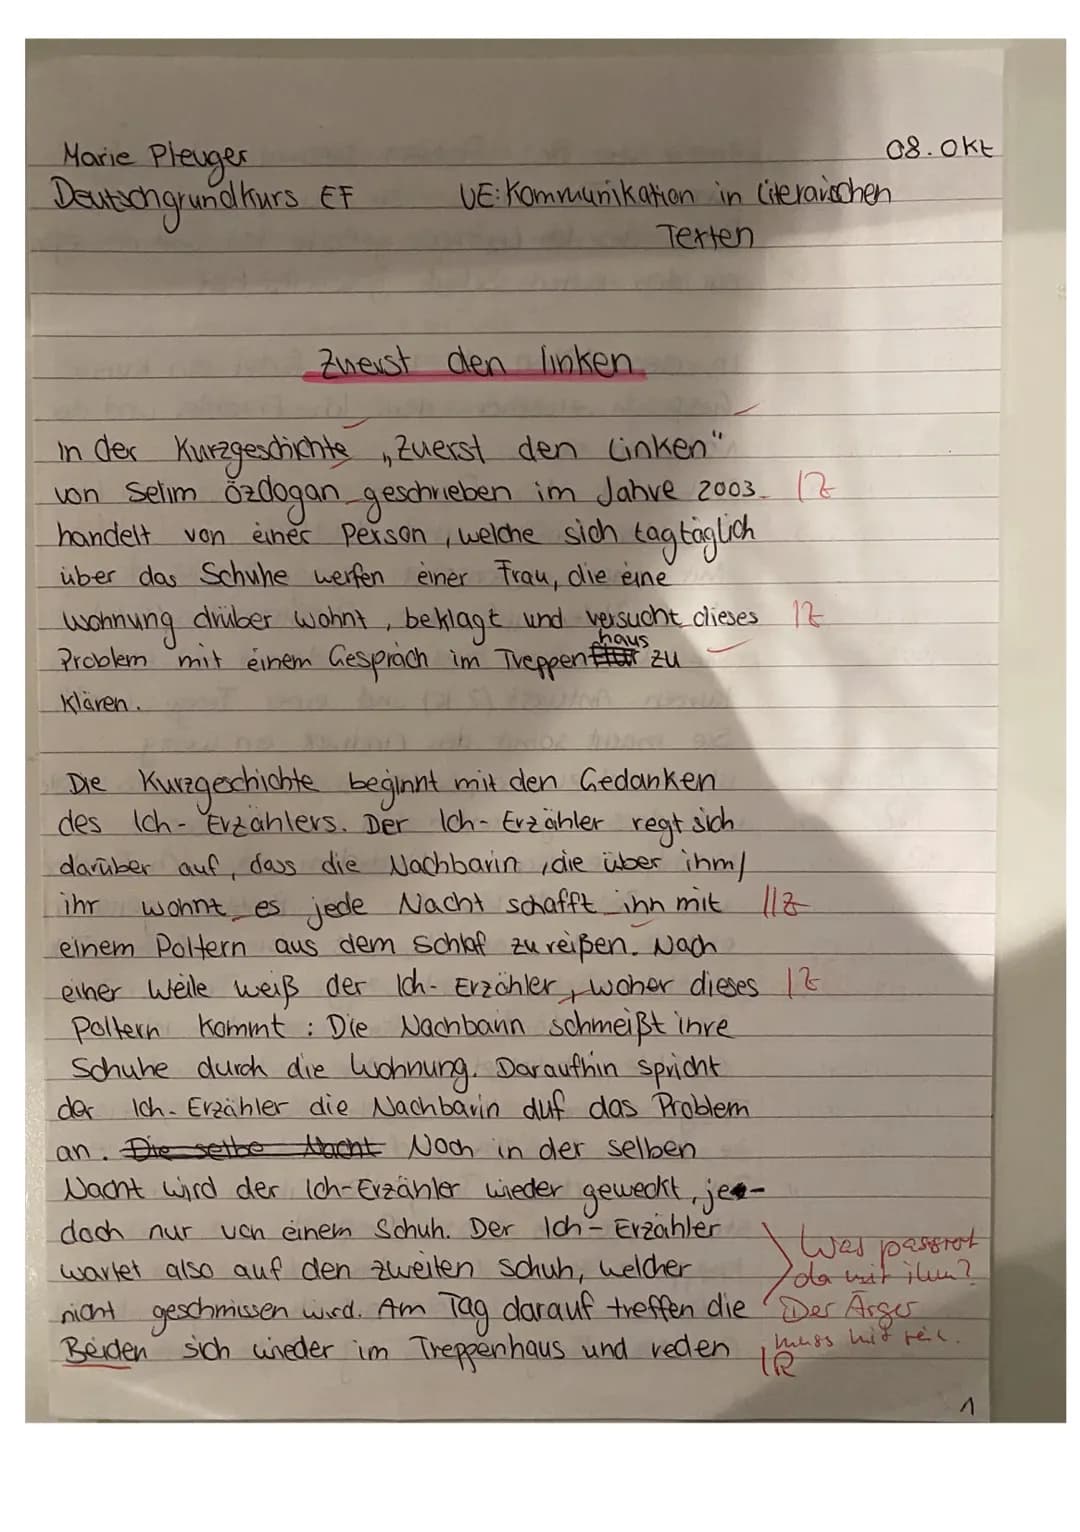 Marie Pleuger
08.Okt
Deutschgrundkurs EF
UE: Kommunikation in literarischen
Texten
Zuerst den linken
In der Kurzgeschichte „Zuerst den Linken"
von Selim Özdogan geschrieben im Jahre 2003 IZ
handelt von einer Person, welche sich tagtäglich
über das Schuhe werfen einer Frau, die eine
Wohnung drüber wohnt, beklagt und versucht dieses IZ
haus
Problem mit einem Gespräch im Treppenflur zu
klären.
Die Kurzgeschichte beginnt mit den Gedanken
des Ich-Erzählers. Der Ich-Erzähler regt sich
darüber auf, dass die Nachbarin, die über ihm/
ihr wohnt es jede Nacht schafft ihn mit IIZ
einem Poltern aus dem Schlaf zu reißen. Nach
einer Weile weiß der Ich-Erzähler, woher dieses IZ
Poltern kommt: Die Nachbarin schmeißt ihre
Schuhe durch die Wohnung. Daraufhin spricht
der Ich-Erzähler die Nachbarin auf das Problem
an. Die selbe Nacht Noch in der selben
Nacht wird der Ich-Erzähler wieder geweckt, je-
doch nur von einem Schuh. Der Ich-Erzähler
wartet also auf den zweiten Schuh, welcher
nicht geschmissen wird. Am Tag darauf treffen die
Beiden sich wieder im Treppenhaus und reden
Was passiert
da mit ihm?
Der Ärger
muss mit rein.
IR
1